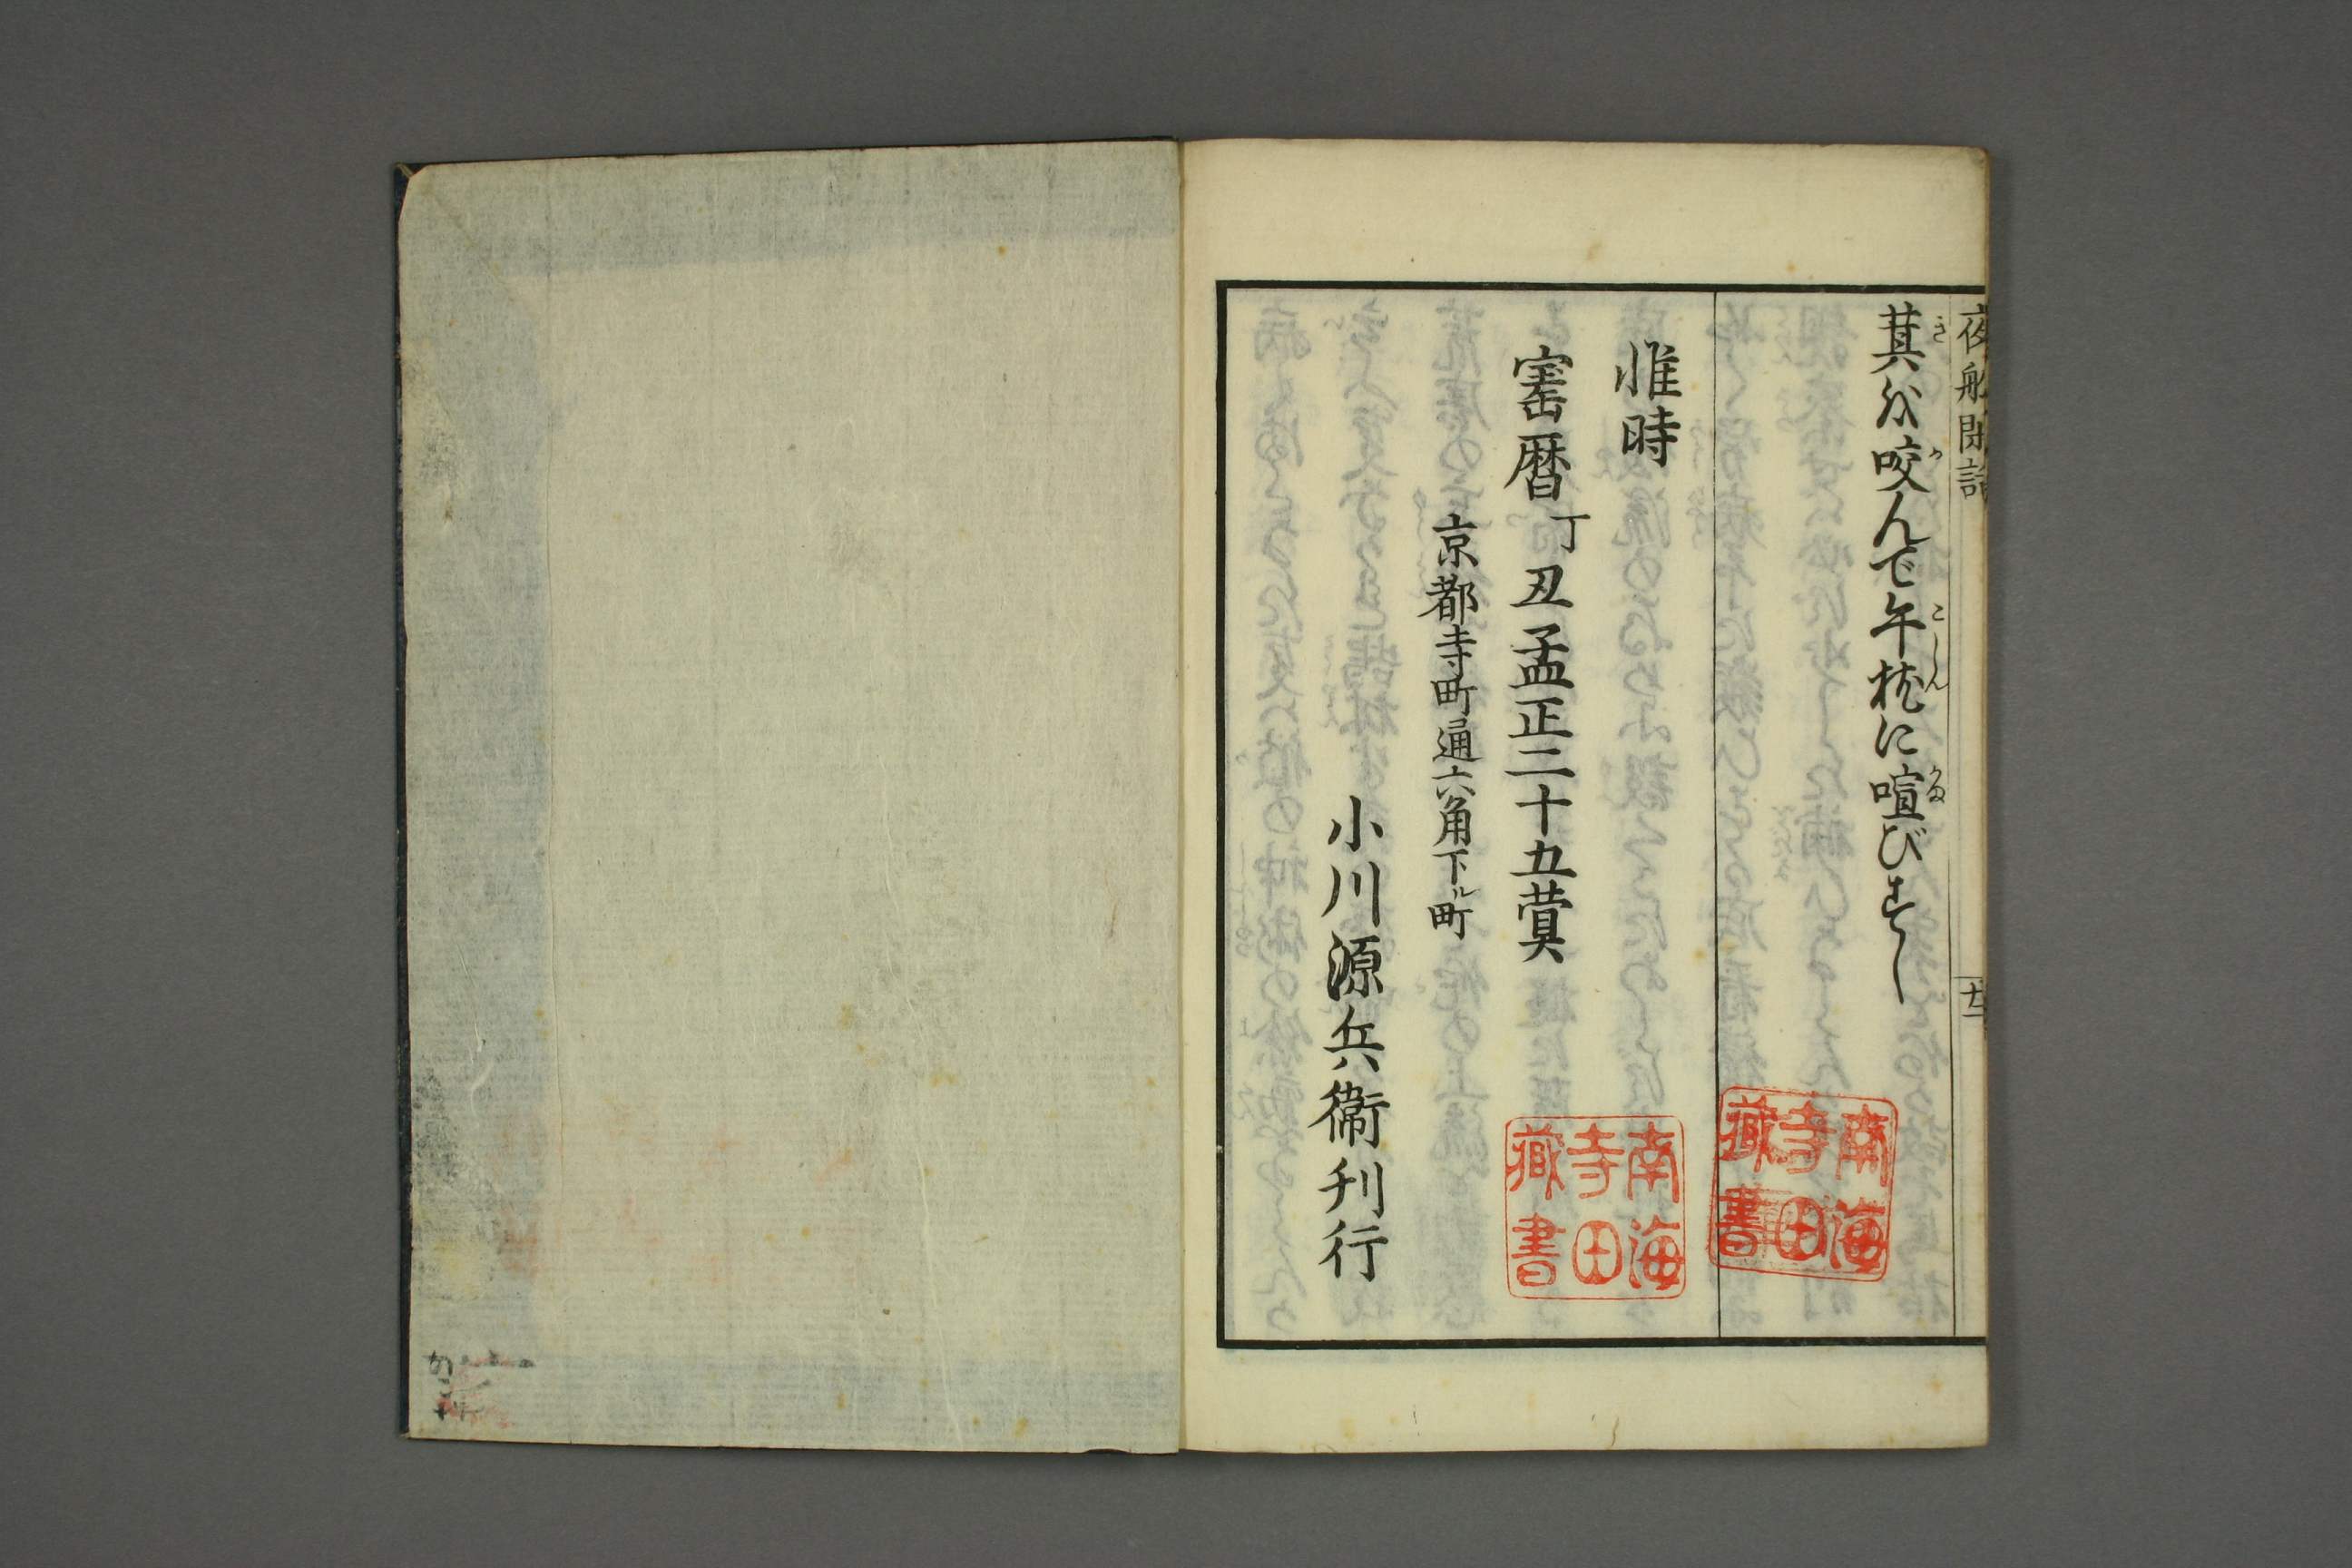 夜船閑話
萁を咬んで午枕に喧びすし
き か こしん かま
廿二
惟時
寚暦丁丑孟正二十五蓂
京都寺町通六角下ル町
小川源兵衞刊行
南海寺田藏書
南海寺田藏書